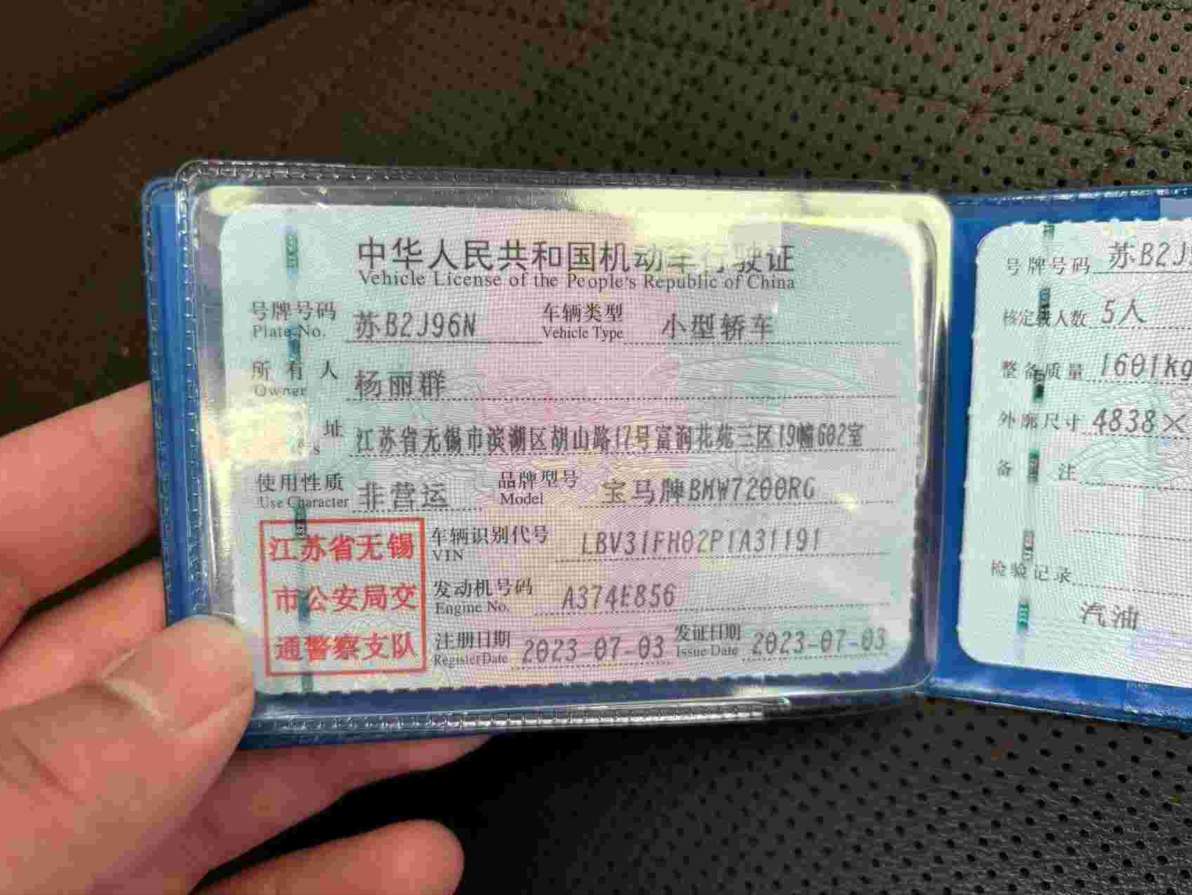 中华人民共和国机动车行驶证
Vehicle License of the People's Republic of China
号牌号码 苏B2J96N 车辆类型 小型轿车
Plate No. Vehicle Type
所有人 杨丽群
Owner
址 江苏省无锡市滨湖区胡山路17号富润花苑三区19幢602室
使用性质 非营运 品牌型号 宝马牌BMW7200RG
Use Character Model
江苏省无锡
市公安局交
通警察支队
车辆识别代号 LBV31FH02P1A31191
VIN
发动机号码 A374E856
Engine No.
注册日期 2023-07-03 发证日期 2023-07-03
Register Date Issue Date
号牌号码 苏B2J
核定载人数 5人
整备质量 1601kg
外廓尺寸 4838×
备注
检验记录
汽油